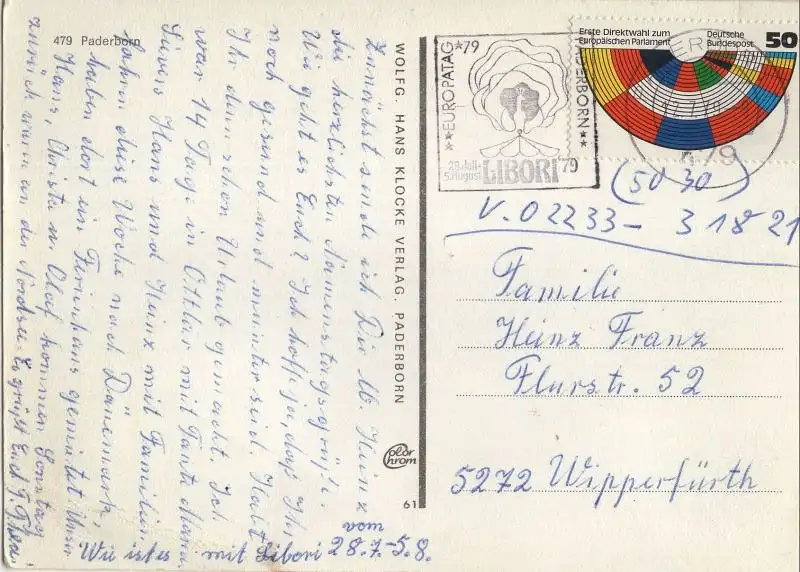 479 Paderborn
Zunächst sende ich Dir lb. Heinz
die herzlichsten Namenstagsgrüße.
Wie geht es Euch? Ich hoffe ja, daß Ihr
noch gesund und munter seid. Habt
Ihr denn schon Urlaub gemacht. Ich
war 14 Tage in Ottlar mit Tante
Hans und Heinz mit Familien
fahren diese Woche nach Dänemark,
haben dort ein Ferienhaus gemietet. Unsere
Hans, Christa u. Olaf kommen Sonntag
zurück, waren an der Nordsee. Es grüßt Euch T.
Wie ist es mit Libori vom 28.7.-5.8.
WOLFG. HANS KLOCKE VERLAG, PADERBORN
Color
chrom
61
EUROPATAG '79
PADERBORN
28. Juli-
5. August
LIBORI '79
Erste Direktwahl zum
Europäischen Parlament
Deutsche
Bundespost
50
479
(50 30)
V. 02233 - 31821
Familie
Heinz Franz
Flurstr. 52
5272 Wipperfürth